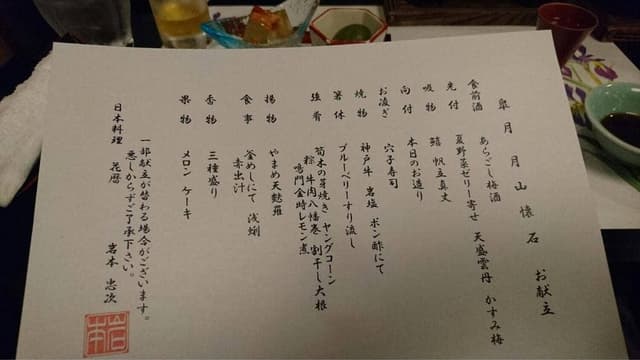 皐月 月山懐石 お献立
食前酒 あらごし梅酒
先付 夏野菜ゼリー寄せ 天盛雲丹 かすみ梅
吸物 鱚 帆立真丈
向付 本日のお造り
お凌ぎ 穴子寿司
焼物 神戸牛 岩塩 ポン酢にて
箸休 ブルーベリーすり流し
強肴 筍木の芽焼き ヤングコーン
粽 牛肉八幡巻 割干し大根
鳴門金時レモン煮
揚物 やまめ天麩羅
食事 釜めしにて 浅蜊
赤出汁
香物 三種盛り
果物 メロン ケーキ
一部献立が替わる場合がございます。
悪しからずご了承下さい。
日本料理 花暦 岩本 忠次
岩本